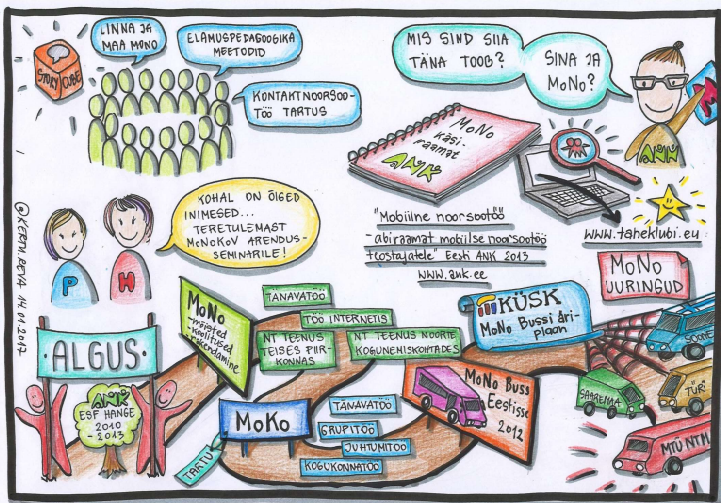 STORY CUBE
LINNA JA
MAA MONO
ELAMUSPEDAGOOGIKA
MEETODID
KONTAKTNOORSOO-
TÖÖ TARTUS
MIS SIND SIIA
TÄNA TOOB?
SINA JA
MoNo?
ANK
MoNo
KÄSI-
RAAMAT
ANK
"Mobiilne noorsootöö
- abiraamat mobiilse noorsootöö
teostajatele" Eesti ANK 2013
www.ank.ee
www.taheklubi.eu
MoNo
UURINGUD
KOHAL ON ÕIGED
INIMESED...
TERETULEMAST
MoNoKoV ARENDUS-
SEMINARILE!
P
H
@KERTU REVA 14.01.2017
ALGUS
ANK
ESF HANGE
2010
- 2013
MoNo
- mõisted
- koolitused
TÄNAVATÖÖ
TÖÖ INTERNETIS
NT TEENUS
TEISES PIIR-
KONNAS
NT TEENUS NOORTE
KOGUNEMISKOHTADES
KÜSK
MoNo Bussi äri-
plaan
MoKo
TARTU
TÄNAVATÖÖ
GRUPITÖÖ
JUHTUMITÖÖ
KOGUKONNATÖÖ
MoNo Buss
Eestisse
2012
SAAREMAA
TÜRI
MTÜ NTM